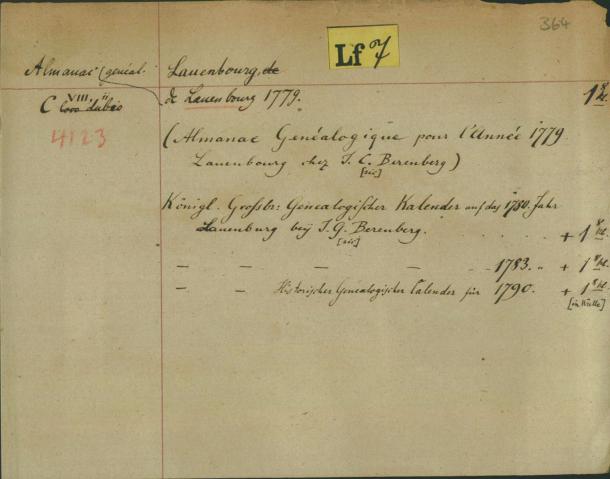 364
Lf 7
Almanac (généal. Lauenbourg, de
de Lauenbourg 1779. 1
C VIII. ii
loco dubio
4123
(Almanac Genéalogique pour l'Année 1779
Lauenbourg chez J. C. Berenberg)
[sic]
Königl. Grossbr: Genealogischer Kalender auf das 1780. Jahr
Lauenburg bey J. G. Berenberg. + 1
[sic]
— — — — 1783. „ + 1
— — Historischer Genealogischer Calender für 1790. + 1
[in Hülle]